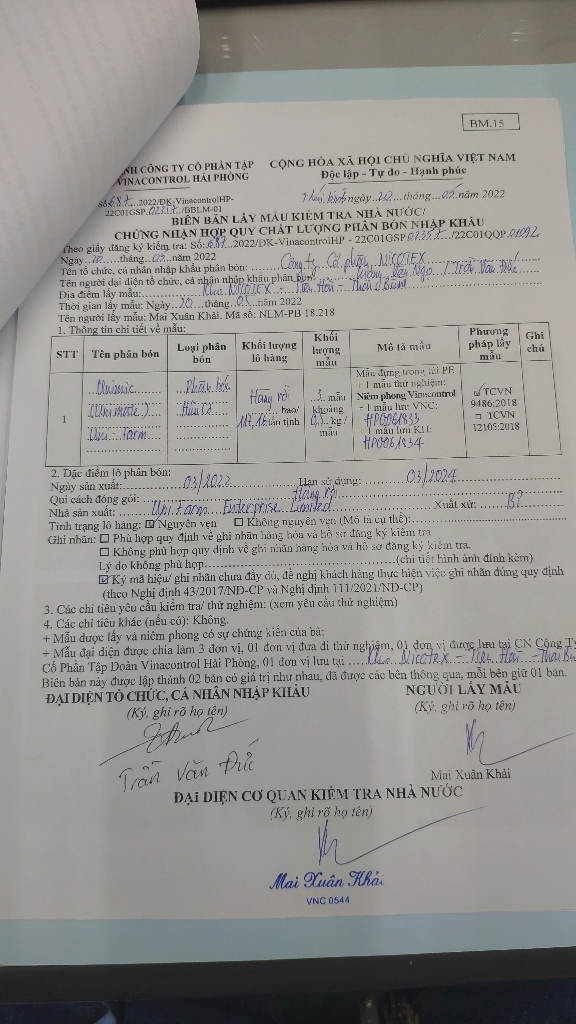 BM.15
NH CÔNG TY CỔ PHẦN TẬP
CỘNG HÒA XÃ HỘI CHỦ NGHĨA VIỆT NAM
VINACONTROL HẢI PHÒNG
Độc lập - Tự do - Hạnh phúc
Số 687...2022/ĐK-VinacontrolHP-
22C01GSP /BBLM-01
Thái Bình ngày 20 tháng 05 năm 2022
BIÊN BẢN LẤY MẪU KIỂM TRA NHÀ NƯỚC/
CHỨNG NHẬN HỢP QUY CHẤT LƯỢNG PHÂN BÓN NHẬP KHẨU
Theo giấy đăng ký kiểm tra: Số: 687...2022/ĐK-VinacontrolHP - 22C01GSP /22C01QQP
Ngày 20 tháng 05 năm 2022
Tên tổ chức, cá nhân nhập khẩu phân bón: Công ty Cổ phần NICOTEX
Tên người đại diện tổ chức, cá nhân nhập khẩu phân bón: Trần Văn Đức
Địa điểm lấy mẫu: Kho NICOTEX - Tiền Hải - Thái Bình
Thời gian lấy mẫu: Ngày 20 tháng 05 năm 2022
Tên người lấy mẫu: Mai Xuân Khải. Mã số: NLM-PB 18.218
1. Thông tin chi tiết về mẫu:
STT Tên phân bón Loại phân bón Khối lượng lô hàng Khối lượng mẫu Mô tả mẫu Phương pháp lấy mẫu Ghi chú
1
Unimic
Uni Farm
Phân bón
Hữu cơ
Hàng rời
bao/
tấn tịnh
3 mẫu
khoảng
kg /
mẫu
Mẫu đựng trong túi PE
+ 1 mẫu thử nghiệm:
Niêm phong Vinacontrol
- 1 mẫu lưu VNC:
HP0061833
- 1 mẫu lưu KH:
HP0061834
☑ TCVN
9486:2018
□ TCVN
12105:2018
2. Đặc điểm lô phân bón:
Ngày sản xuất: 03/2022 Hạn sử dụng: 03/2024
Qui cách đóng gói: Hàng rời
Nhà sản xuất: Uni Farm Enterprise Limited Xuất xứ: Bỉ
Tình trạng lô hàng: ☑ Nguyên vẹn □ Không nguyên vẹn (Mô tả cụ thể):
Ghi nhãn: □ Phù hợp quy định về ghi nhãn hàng hóa và hồ sơ đăng ký kiểm tra
□ Không phù hợp quy định về ghi nhãn hàng hóa và hồ sơ đăng ký kiểm tra.
Lý do không phù hợp (chi tiết hình ảnh đính kèm)
☑ Ký mã hiệu/ ghi nhãn chưa đầy đủ, đề nghị khách hàng thực hiện việc ghi nhãn đúng quy định
(theo Nghị định 43/2017/NĐ-CP và Nghị định 111/2021/NĐ-CP)
3. Các chỉ tiêu yêu cầu kiểm tra/ thử nghiệm: (xem yêu cầu thử nghiệm)
4. Các chỉ tiêu khác (nếu có): Không.
+ Mẫu được lấy và niêm phong có sự chứng kiến của bà:
+ Mẫu đại diện được chia làm 3 đơn vị, 01 đơn vị đưa đi thử nghiệm, 01 đơn vị được lưu tại CN Công Ty
Cổ Phần Tập Đoàn Vinacontrol Hải Phòng, 01 đơn vị lưu tại Kho Nicotex - Tiền Hải - Thái Bình
Biên bản này được lập thành 02 bản có giá trị như nhau, đã được các bên thông qua, mỗi bên giữ 01 bản.
ĐẠI DIỆN TỔ CHỨC, CÁ NHÂN NHẬP KHẨU NGƯỜI LẤY MẪU
(Ký, ghi rõ họ tên) (Ký, ghi rõ họ tên)
Trần Văn Đức
Mai Xuân Khải
ĐẠI DIỆN CƠ QUAN KIỂM TRA NHÀ NƯỚC
(Ký, ghi rõ họ tên)
Mai Xuân Khải
VNC 0544